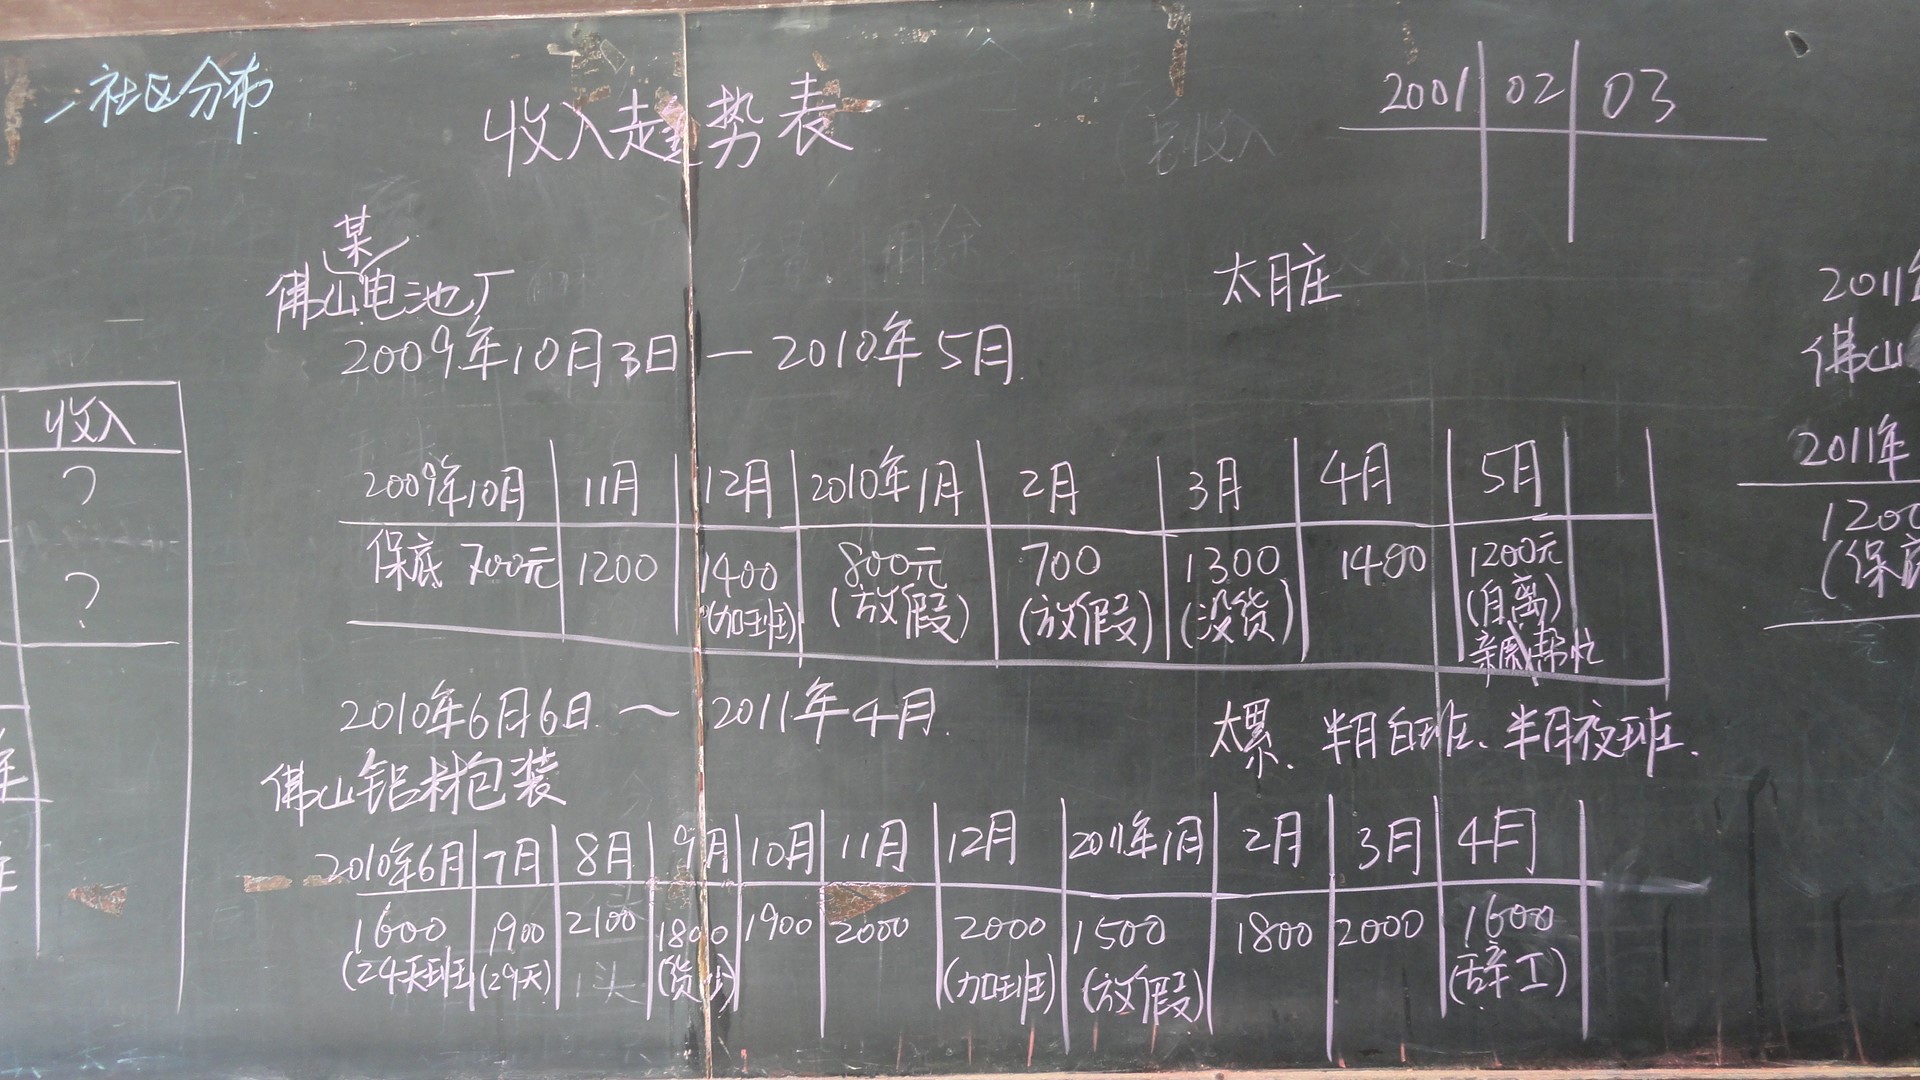 一社区分布
收入趋势表
2001 02 03
总收入
某
佛山电池厂
太月庄
2009年10月3日 — 2010年5月
收入
?
?
2009年10月 11月 12月 2010年1月 2月 3月 4月 5月
保底 700元 1200 1400 800元 700 1300 1400 1200元
(加班) (放假) (放假) (没货) (自离)
亲戚帮忙
2010年6月6日 ~ 2011年4月
太累、半月白班、半月夜班.
佛山铝材包装
2010年6月 7月 8月 9月 10月 11月 12月 2011年1月 2月 3月 4月
1600 1900 2100 1800 1900 2000 2000 1500 1800 2000 1600
(24天班) (29天) (货少) (加班) (放假) (辞工)
2011年
佛山
2011年
1200
(保底